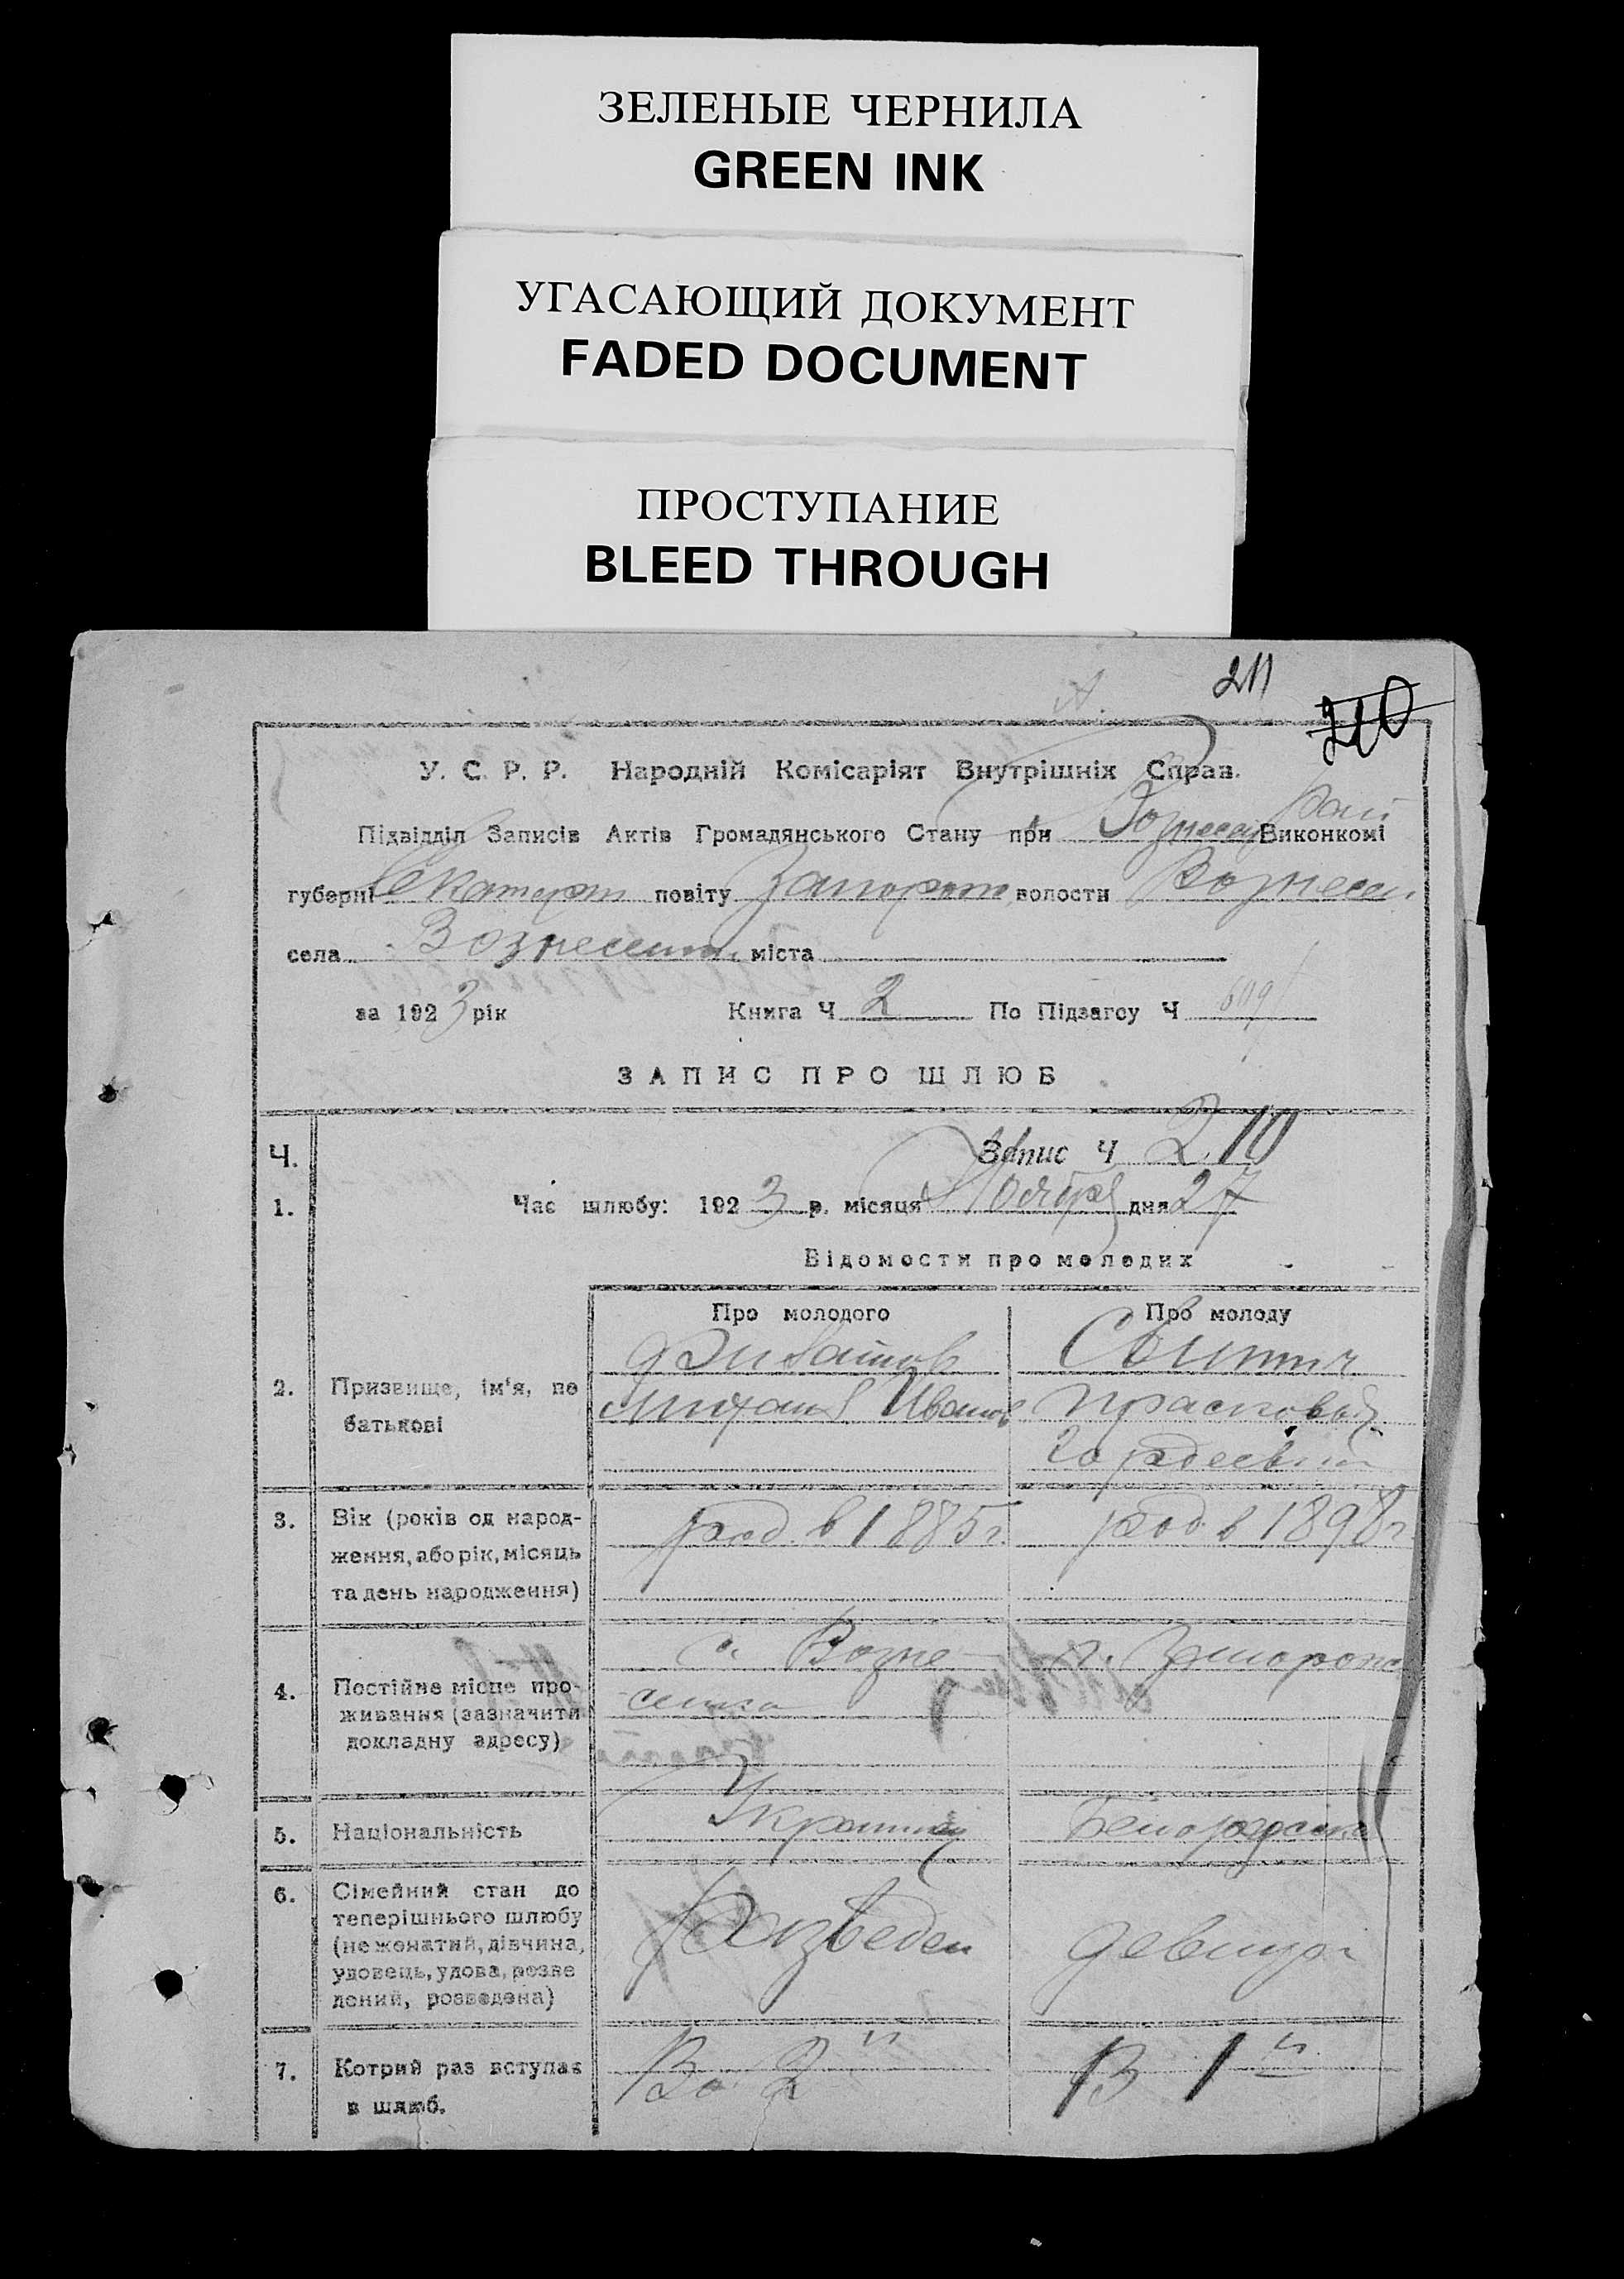 ЗЕЛЕНЫЕ ЧЕРНИЛА
GREEN INK
УГАСАЮЩИЙ ДОКУМЕНТ
FADED DOCUMENT
ПРОСТУПАНИЕ
BLEED THROUGH
211
210
У. С. Р. Р. Народній Комісаріят Внутрішніх Справ.
Підвідділ Записів Актів Громадянського Стану при Вознесен Рай Виконкомі
губерні Екатер повіту Запорож волости Вознесен
села Вознесен міста
за 1923 рік Книга Ч 2 По Підзагсу Ч 609
ЗАПИС ПРО ШЛЮБ
Ч. Запис Ч 210
1. Час шлюбу: 1923 р. місяця Ноября дня 27
Відомости про молодих
Про молодого Про молоду
2. Призвище, ім'я, по батькові
Михаил Иванов Прасковья
Гордеевна
3. Вік (років од народ-
ження, або рік, місяць
та день народження)
род. в 1885 г. род. в 1898 г.
4. Постійне місце про-
живання (зазначити
докладну адресу)
с. Возне
сенка
г. Запорож
5. Національність Украинец Белорусска
6. Сімейний стан до
теперішнього шлюбу
(не жонатий, дівчина,
удовець, удова, розве
дений, розведена)
Разведен девица
7. Котрий раз вступає
в шлюб.
Во 2й В 1й